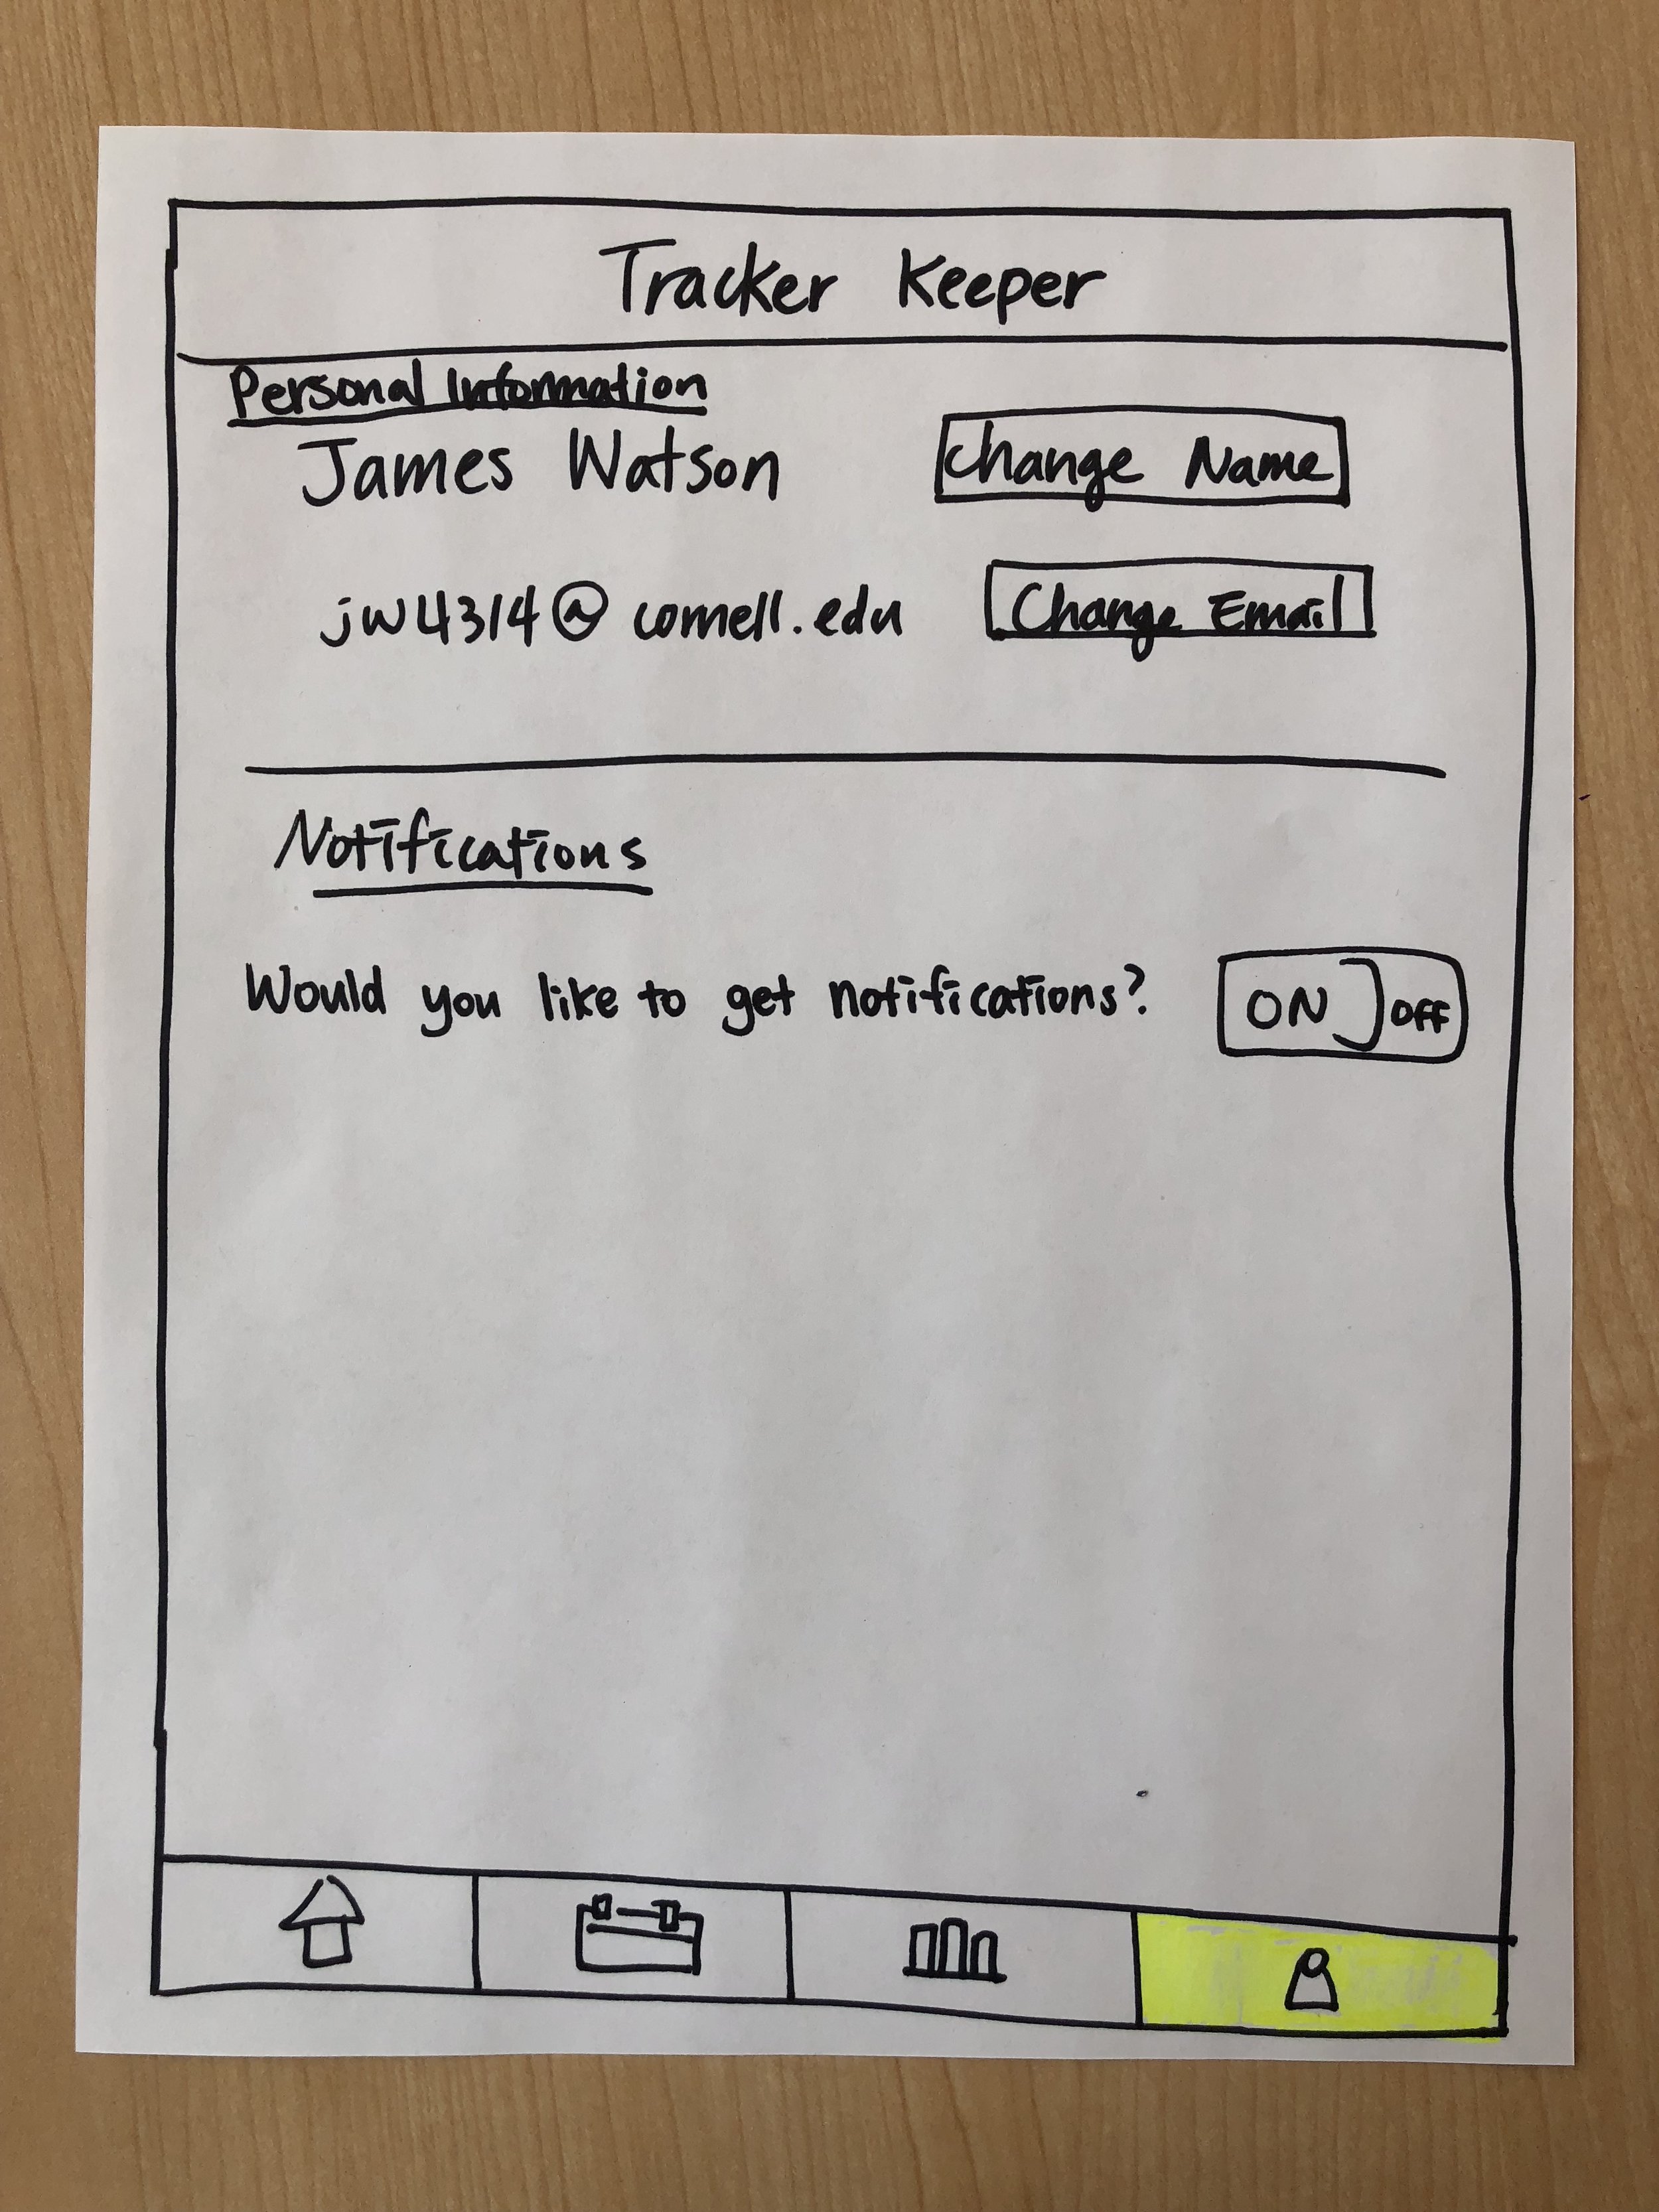 Tracker Keeper
Personal Information
James Watson Change Name
jw4314@cornell.edu Change Email
Notifications
Would you like to get notifications? ON OFF